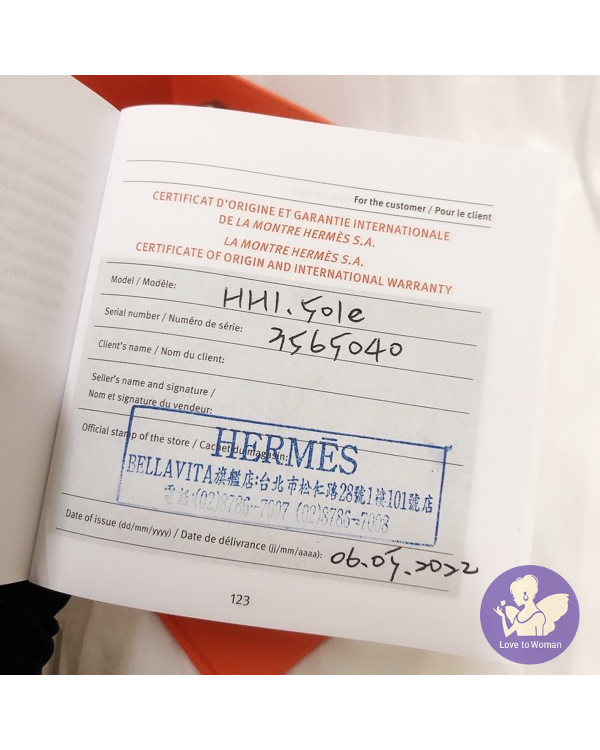 For the customer / Pour le client
CERTIFICAT D'ORIGINE ET GARANTIE INTERNATIONALE
DE LA MONTRE HERMÈS S.A.
LA MONTRE HERMÈS S.A.
CERTIFICATE OF ORIGIN AND INTERNATIONAL WARRANTY
Model / Modèle: HH1.501e
Serial number / Numéro de série: 3565040
Client's name / Nom du client:
Seller's name and signature /
Nom et signature du vendeur:
Official stamp of the store / Cachet du magasin:
HERMĒS
BELLAVITA旗艦店:台北市松仁路28號1樓101號店
電話:(02)8786-7007 (02)8786-7008
Date of issue (dd/mm/yyyy) / Date de délivrance (jj/mm/aaaa): 06.05.2022
123
Love to Woman